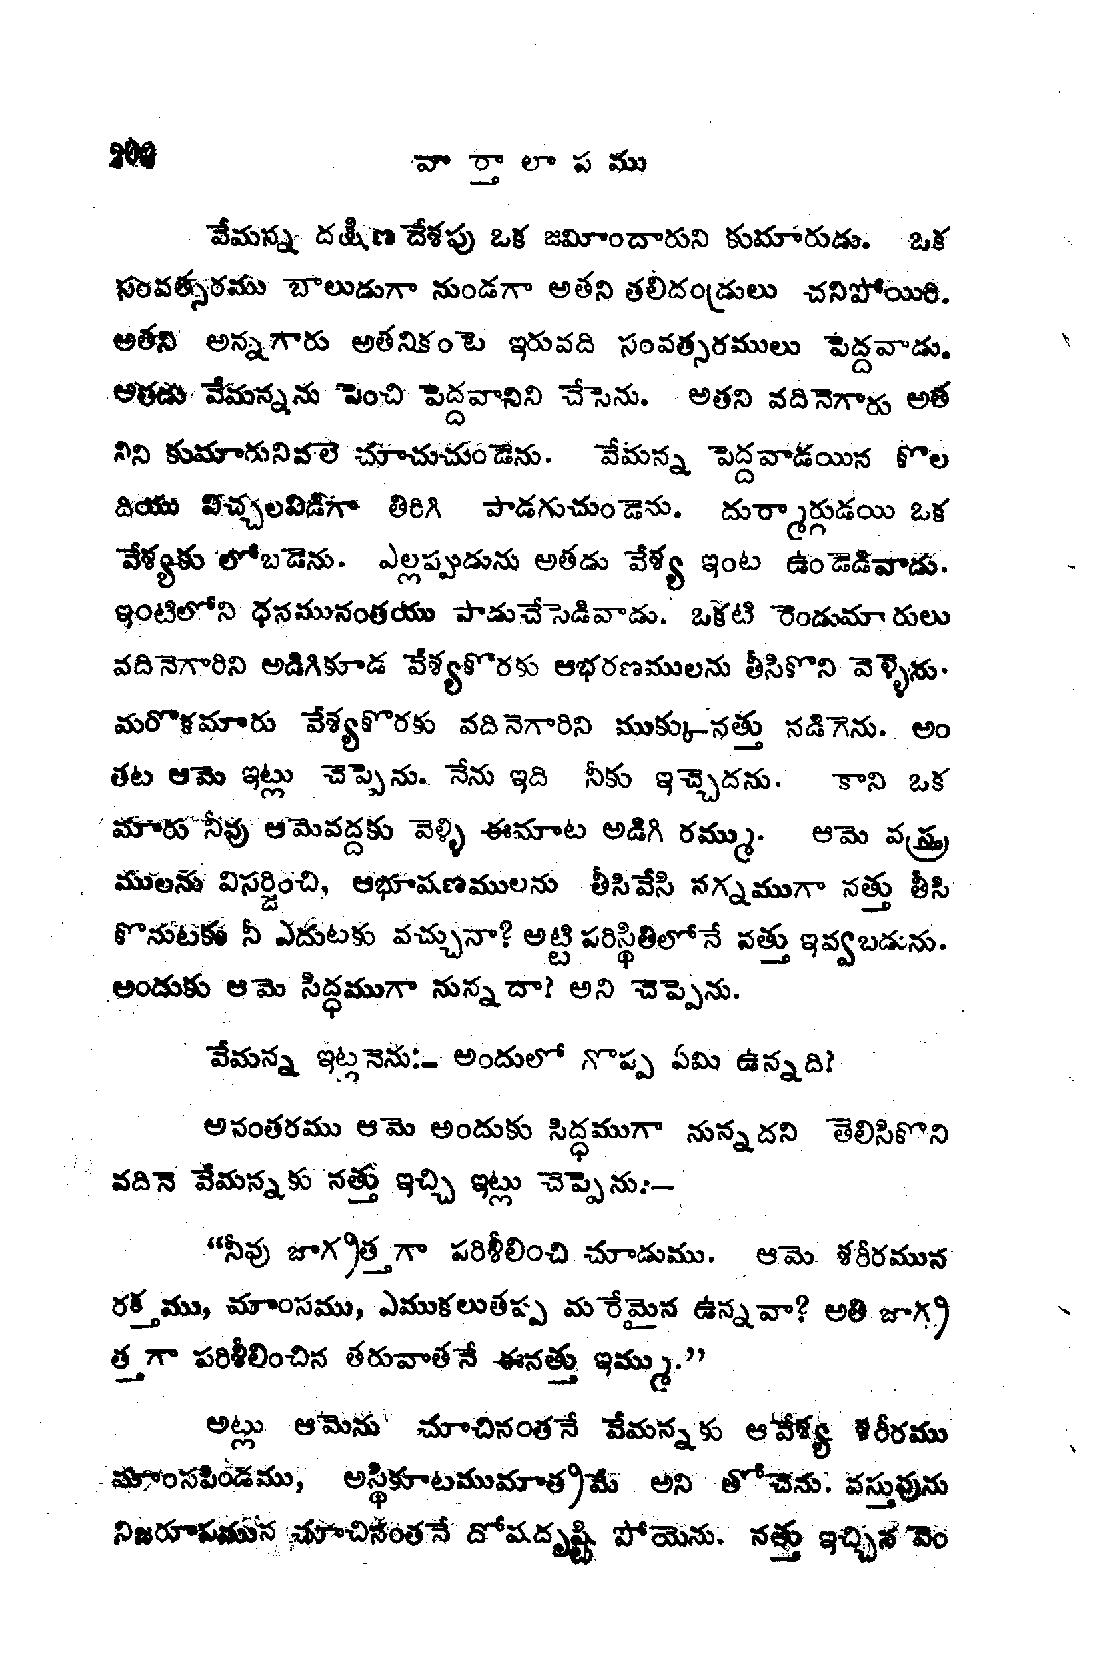 వార్తాలాపము
వేమన్న దక్షిణదేశపు ఒక జమీందారుని కుమారుడు. ఒక
సంవత్సరము బాలుడుగా నుండగా అతని తలిదండ్రులు చనిపోయిరి.
అతని అన్నగారు అతనికంటె ఇరువది సంవత్సరములు పెద్దవాడు.
ఆతడు వేమన్నను పెంచి పెద్దవానిని చేసెను. అతని వదినెగారు అత
నిని కుమారునివలె చూచుచుండెను. వేమన్న పెద్దవాడయిన కొల
దియు విచ్చలవిడిగా తిరిగి పాడగుచుండెను. దుర్మార్గుడయి ఒక
వేశ్యకు లోబడెను. ఎల్లప్పుడును అతడు వేశ్య ఇంట ఉండెడివాడు.
ఇంటిలోని ధనమునంతయు పాడుచేసెడివాడు. ఒకటి రెండుమారులు
వదినెగారిని అడిగికూడ వేశ్యకొరకు ఆభరణములను తీసికొని వెళ్ళెను.
మరొకమారు వేశ్యకొరకు వదినెగారిని ముక్కు-నత్తు నడిగెను. అం
తట ఆమె ఇట్లు చెప్పెను. నేను ఇది నీకు ఇచ్చెదను. కాని ఒక
మారు నీవు ఆమెవద్దకు వెళ్ళి ఈమాట అడిగి రమ్ము. ఆమె వస్త్ర
ములను విసర్జించి, ఆభూషణములను తీసివేసి నగ్నముగా నత్తు తీసి
కొనుటకు నీ ఎదుటకు వచ్చునా? అట్టి పరిస్థితిలోనే నత్తు ఇవ్వబడును.
అందుకు ఆమె సిద్ధముగా నున్నదా? అని చెప్పెను.
వేమన్న ఇట్లనెను:- అందులో గొప్ప ఏమి ఉన్నది?
అనంతరము ఆమె అందుకు సిద్ధముగా నున్నదని తెలిసికొని
వదినె వేమన్నకు నత్తు ఇచ్చి ఇట్లు చెప్పెను:—
“నీవు జాగ్రత్తగా పరిశీలించి చూడుము. ఆమె శరీరమున
రక్తము, మాంసము, ఎముకలుతప్ప మరేమైన ఉన్నవా? అతి జాగ్ర
త్తగా పరిశీలించిన తరువాతనే ఈనత్తు ఇమ్ము.”
అట్లు ఆమెను చూచినంతనే వేమన్నకు ఆవేశ్య శరీరము
మాంసపిండము, అస్థికూటముమాత్రమే అని తోచెను. వస్తువును
నిజరూపమున చూచినంతనే దోషదృష్టి పోయెను. నత్తు ఇచ్చిన వెం